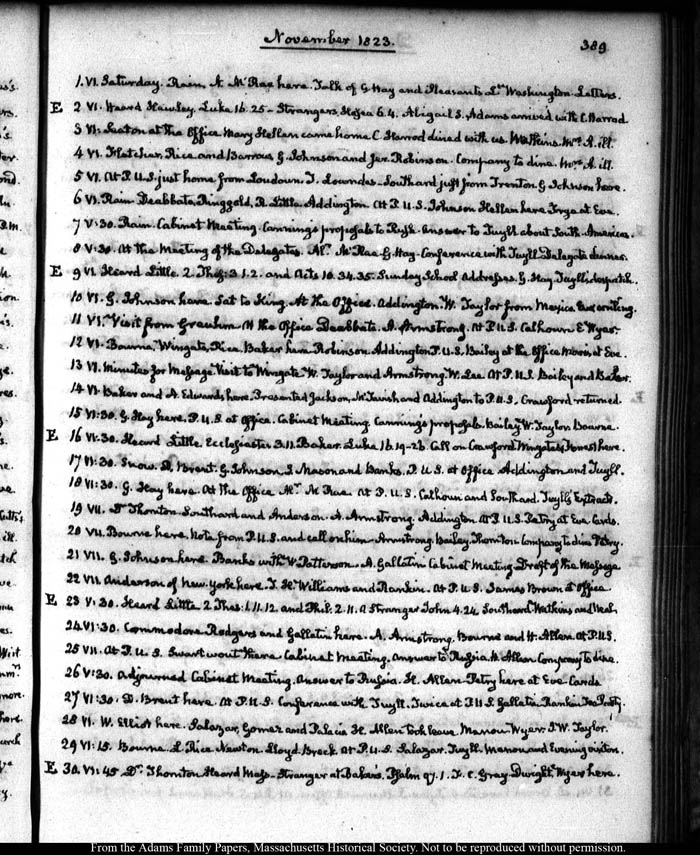 November 1823.
389
1. VI. Saturday. Rain. A. McRae here. Talk of G Hay and Pleasants. Washington Letters.
E 2 VI. Heard Hawley. Luke 16.25 - Strangers, Hosea 6.4. Abigail S. Adams arrived with C. Harrod
3 VI. Seaton at the Office. Mary Hellen came home C. Harrod dined with us. Watkins. Mrs A. ill.
4 VI. Fletcher, Rice and Barrow G. Johnson and Jas. Robinson. Company to dine. Mrs A. ill.
5 VI. At P.U.S. just home from Loudoun. T. Lowndes. Southard just from Trenton. G Johnson here.
6 VI. Rain Deabbate, Ringgold, R. Little. Addington. At P.U.S. Johnson Hellen here Frye at Eve.
7 V:30. Rain. Cabinet Meeting. Canning's proposals to Rush. Answer to Tuyll about South America.
8 V:30. At the Meeting of the Delegates. McRae G. Hay. Conference with Tuyll. Delegate dinner.
E 9 VI. Heard Little. 2. Thes: 3.1.2. and Acts 10.34.35. Sunday School Addresses. G. Hay. Tuyll's despatch.
10 VI. G. Johnson here. Sat to King. At the Office. Addington. W. Taylor from Mexico Eve writing.
11 VI. Visit from Greuhm At the Office Deabbate. A. Armstrong. At P.U.S. Calhoun E. Wyer.
12 VI. Bourne, Wingate, Rice. Baker here Robinson. Addington P.U.S. Bailey at the Office at Eve.
13 VI. Minutes for Message. Visit to Wingate W. Taylor and Armstrong. W. Lee. At P.U.S. Bailey and Baker.
14 VI. Baker and N. Edwards here. Presented Jackson, McTavish and Addington to P.U.S. Crawford returned.
15 VI:30. G. Hay here. P.U.S. at Office. Cabinet Meeting. Canning's proposals. Bailey W. Taylor. Bourne.
E 16 VI:30. Heard Little. Ecclesiastes 3.11. Baker. Luke 16.19-26. Call on Crawford Wingate & Jones here.
17 VI:30. Snow. D. Brent. G. Johnson, J. Mason and Banks. P.U.S. at Office Addington and Tuyll.
18 VI:30. G. Hay here. At the Office McRae. At P.U.S. Calhoun and Southard. Tuyll's Extracts.
19 VII. Dr Thornton. Southard and Anderson. A. Armstrong. Addington At P.U.S. Petry at Eve. Cards.
20 VII. Bourne here. Note from P.U.S. and call on him - Armstrong, Bailey, Thornton Company to dine Petry.
21 VII. G. Johnson here. Banks with W Patterson. A. Gallatin Cabinet Meeting Draft of the Message
22 VII Anderson of New York here. T. H. Williams and Rankin. At P.U.S. James Brown at Office.
E 23 V:30. Heard Little 2 Thes: 1.11.12 and Phil: 2.11. a Stranger John 4.24 Southard Watkins and
24 VI:30. Commodore Rodgers and Gallatin here. A. Armstrong. Bourne and H. Allen at P.U.S.
25 VII. At P.U.S. Swartwout there Cabinet Meeting. Answer to Russia. H. Allen. Company to dine.
26 V:30. Adjourned Cabinet Meeting. Answer to Russia. H. Allen. Petry here at Eve - Cards
27 VI:30. D. Brent here. At P.U.S. Conference with Tuyll. Twice at P.U.S. Gallatin. Rankin. Tea Party.
28 VI. W. Elliot here. Salazar, Gomez and Palacio H. Allen took leave. Manou Wyer. J. W. Taylor.
29 VI:15. Bourne. L. Rice Newton. Lloyd Breck at P.U.S. Salazar. Tuyll. Manou and Evening visitors.
E 30. VI:45 Dr. Thornton Heard Mass - Stranger at Baker's. Psalm 97.1. F. C. Gray. Dwight. Wyer here.
From the Adams Family Papers, Massachusetts Historical Society. Not to be reproduced without permission.